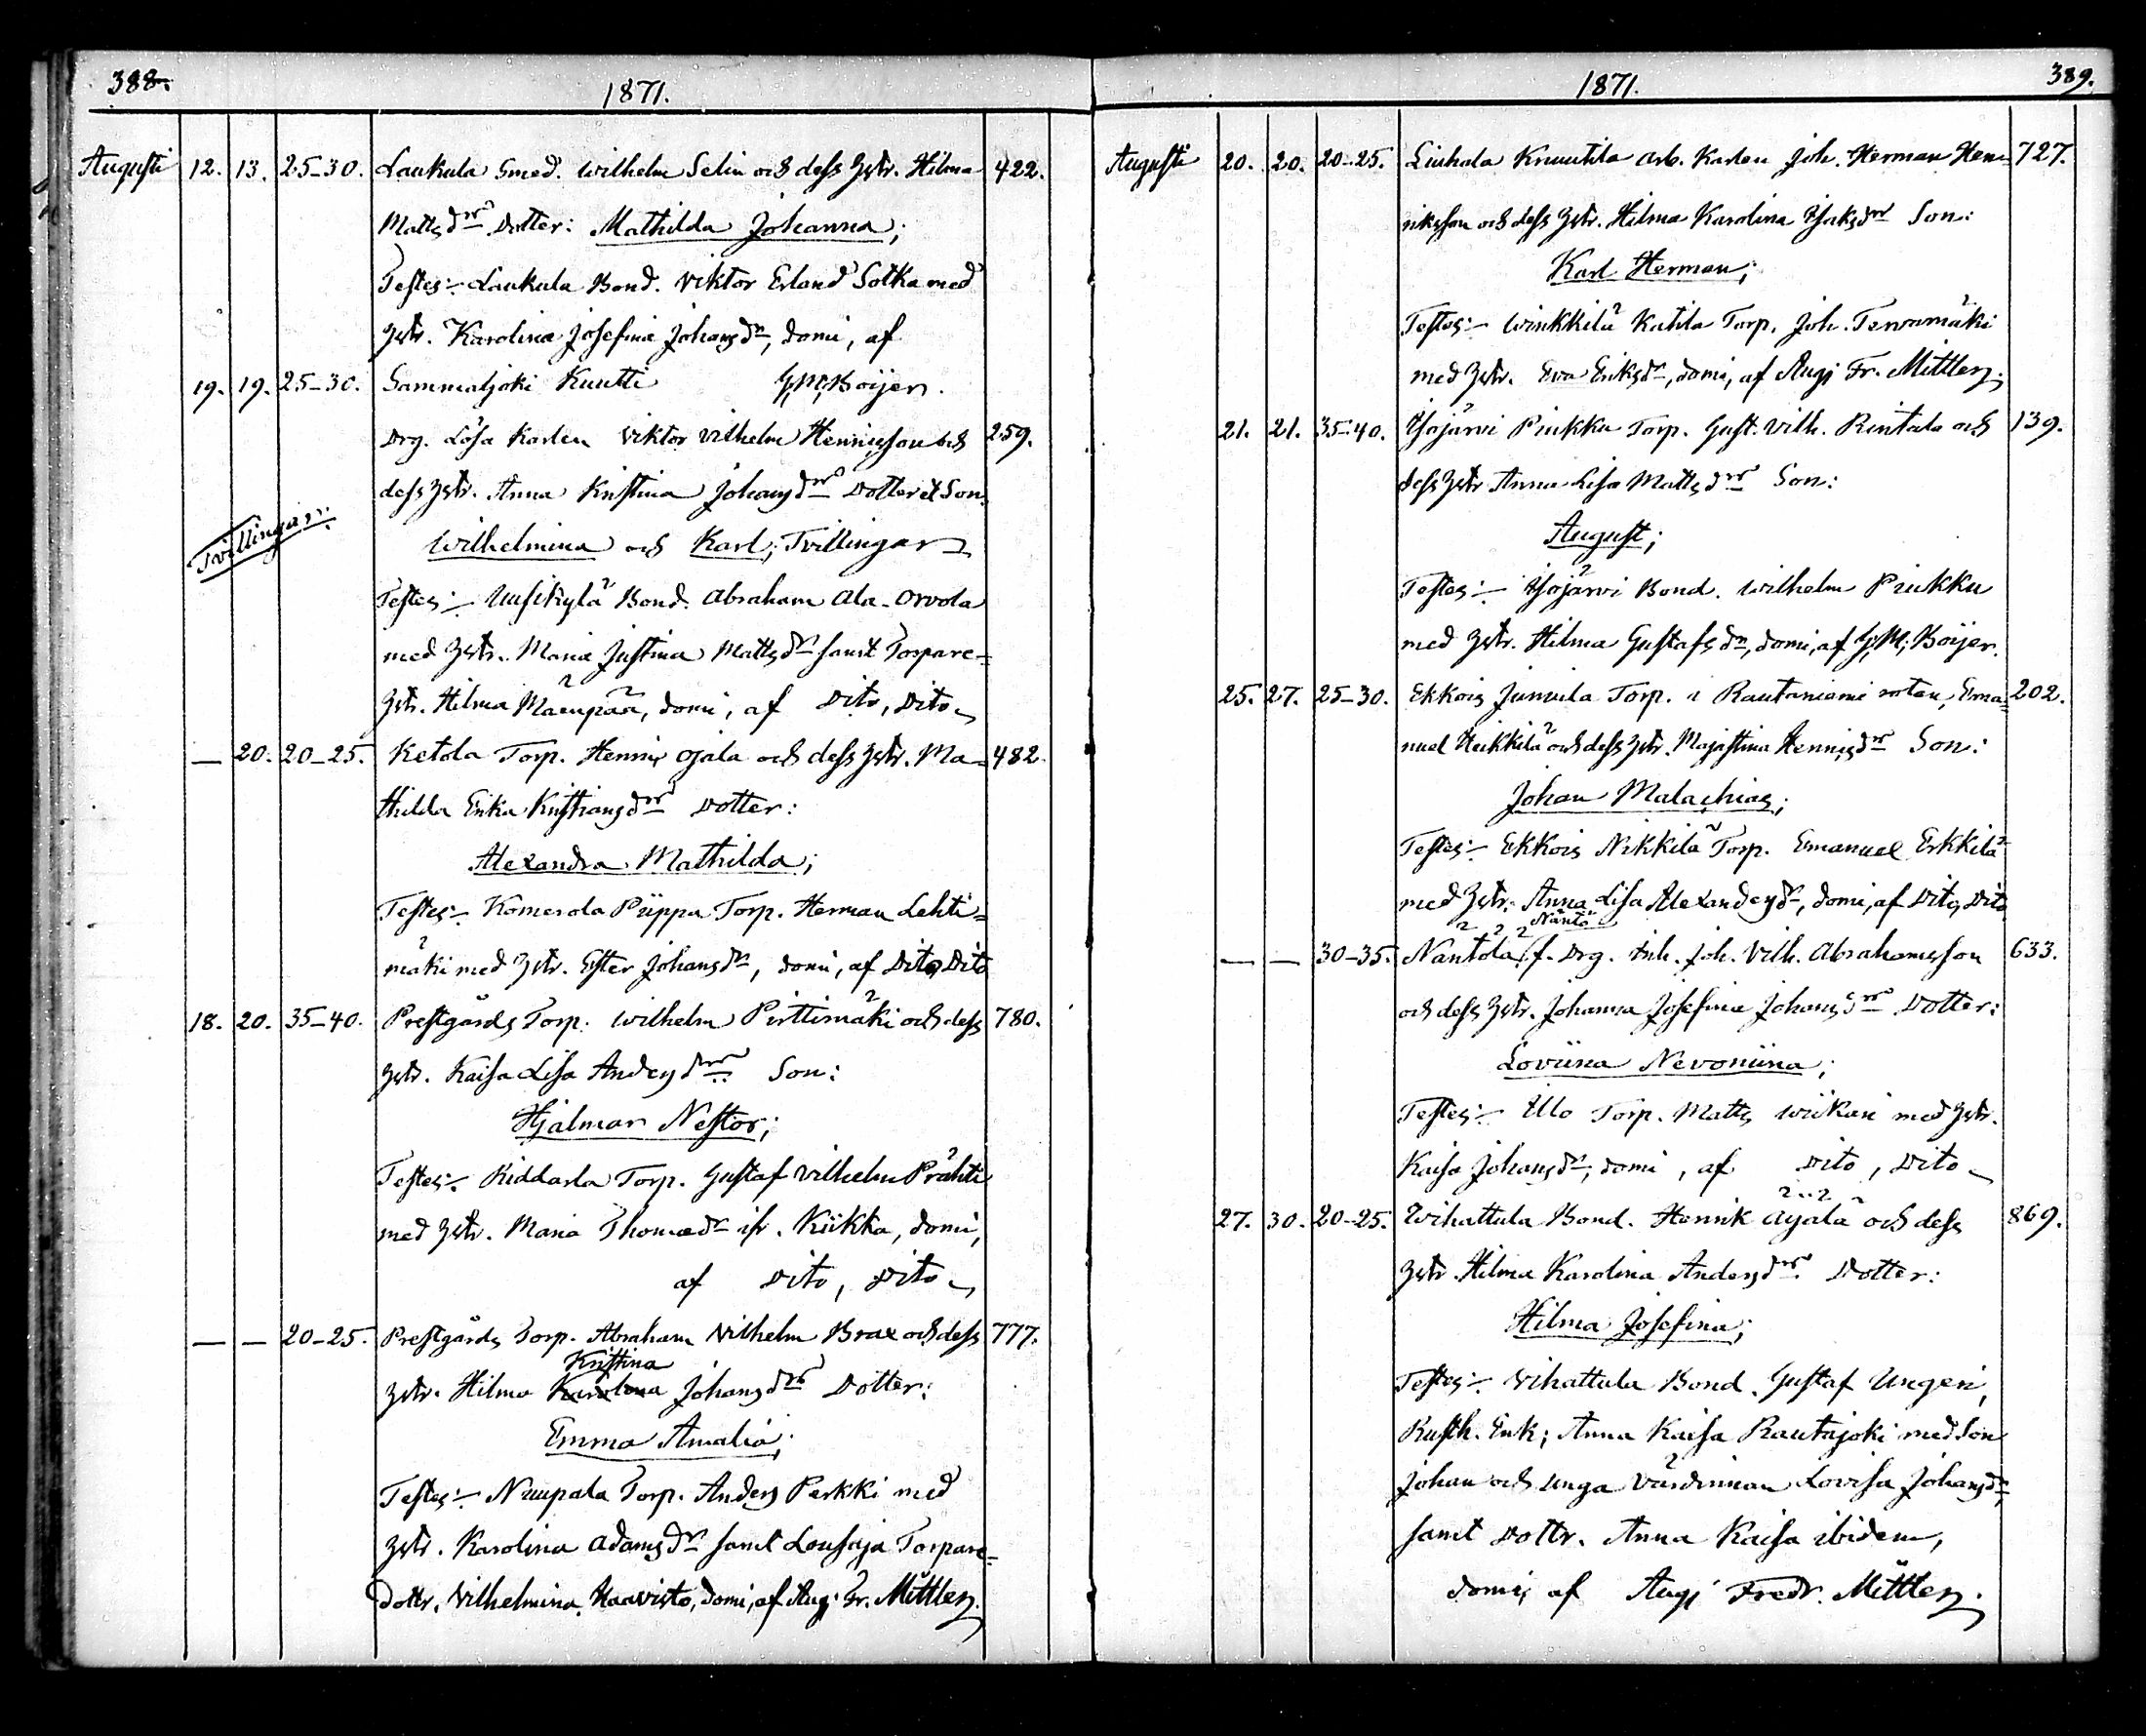 388.
1871.
Augusti 12. 13. 25-30. Laukula Smed. Wilhelm Selin och dess Hstr. Hilma 422.
Mattsdr Dotter: Mathilda Johanna;
Testes:- Laukula Bond. Viktor Erland Sotka med
Hstr. Karolina Josefina Johansdr, domi, af
19. 19. 25-30. Sammaljoki Knutti G,M,Boijer.
Drg. Lösa Karlen Viktor Vilhelm Henriksson och 259.
dess Hstr. Anna Kristina Johansdr Dotter et Son
Tvillingar:
Wilhelmina och Karl; Tvillingar
Testes:- Uusikylä Bond. Abraham Ala-Orvola
med Hstr. Maria Justina Mattsdr samt Torpare-
Hstr. Hilma Maenpää, domi, af Dito, Dito
— 20. 20-25. Ketola Torp. Henrik Ojala och dess Hstr. Ma- 482.
thilda Erika Kristiansdr Dotter:
Alexandra Mathilda;
Testes:- Komerola Piippa Torp. Herman Lehti-
mäki med Hstr. Ester Johansdr, domi, af Dito, Dito
18. 20. 35-40. Prestgårds Torp. Wilhelm Pirttimäki och dess 780.
Hstr. Kaisa Lisa Andersdr Son:
Hjalmar Nestor;
Testes:- Riddarla Torp. Gustaf Vilhelm Prähti
med Hstr. Maria Thomædr ifr. Kiikka, domi,
af Dito, Dito
— — 20-25. Prestgårds Torp. Abraham Vilhelm Brax och dess 777.
Kristina
Hstr. Hilma Karolina Johansdr Dotter:
Emma Amalia;
Testes:- Nuupala Torp. Anders Perkki med
Hstr. Karolina Adamsdr samt Lousaja Torpare-
dottr. Vilhelmina Haavisto, domi, af Aug. Fr. Mittler.
389.
1871.
Augusti 20. 20. 20-25. Liuhala Knuutila Arb. Karlen Joh. Herman Hen- 727.
riksson och dess Hstr. Hilma Karolina Isaksdr Son:
Karl Herman;
Testes:- Winkkilä Katila Torp. Joh. Tervamäki
med Hstr. Eva Eriksdr, domi, af Aug. Fr. Mittler.
21. 21. 35-40. Isojärvi Piukku Torp. Gust. Vilh. Rintala och 139.
dess Hstr Anna Lisa Mattsdr Son:
August;
Testes:- Isojärvi Bond. Wilhelm Piukku
med Hstr. Hilma Gustafsdr, domi, af G,M, Boijer.
25. 27. 25-30. Ekkois Junnila Torp. i Rautaniemi rotan, Ema- 202.
nuel Heikkilä och dess Hstr. Majastina Henriksdr Son:
Johan Malachias;
Testes:- Ekkois Nikkilä Torp. Emanuel Erkkilä
med Hstr. Anna Lisa Alexandersdr, domi, af Dito, Dito
Näntö
— — 30-35. Näntölä f. Drg. Inh. Joh. Vilh. Abrahamsson 633.
och dess Hstr. Johanna Josefina Johansdr Dotter:
Loviina Nevoniina;
Testes:- Illo Torp. Matts Wiikari med Hstr.
Kaisa Johansdr, domi, af Dito, Dito
27. 30. 20-25. Wihattula Bond. Henrik Äijälä och dess 869.
Hstr. Hilma Karolina Andersdr Dotter:
Hilma Josefina;
Testes:- Vihattula Bond. Gustaf Ungeri,
Rusth. Enk; Anna Kaisa Rautajoki med Son
Johan och unga Värdinnan Lovisa Johansdr,
samt Dottr. Anna Kaisa ibidem,
domi, af Aug. Fredr. Mittler.